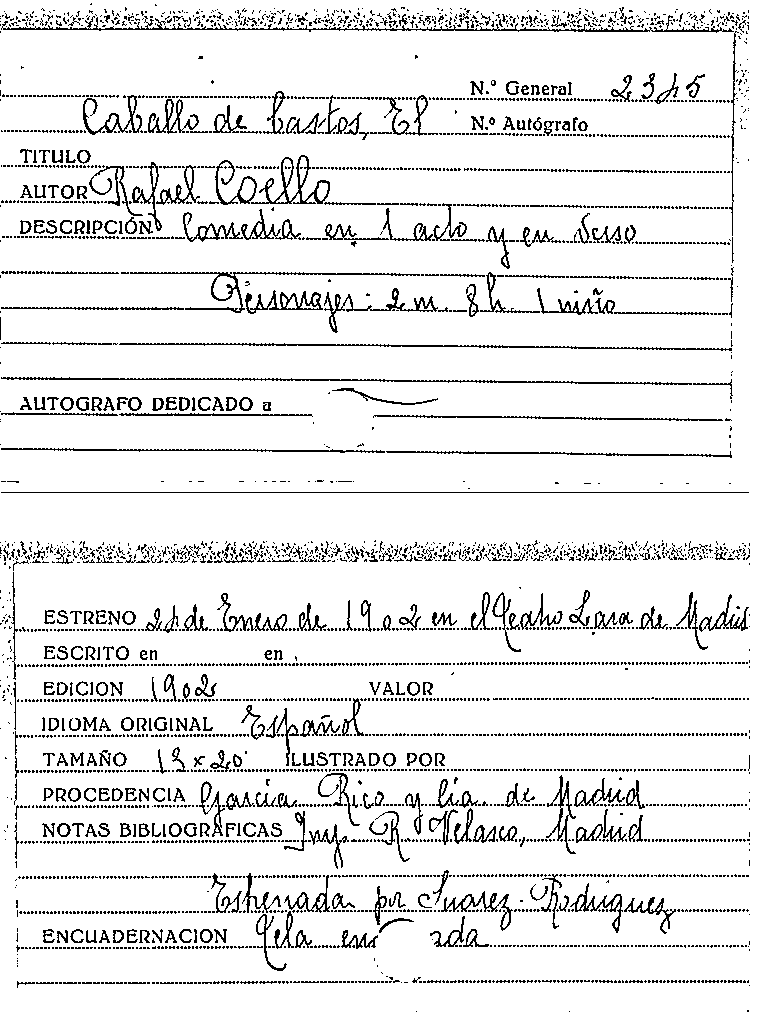 N.º General 2345
Caballo de bastos, El N.º Autógrafo
TITULO
AUTOR Rafael Coello
DESCRIPCIÓN Comedia en 1 acto y en verso
Personajes: 2 m. 8 h. 1 niño
AUTOGRAFO DEDICADO a
ESTRENO 24 de Enero de 1902 en el Teatro Lara de Madrid
ESCRITO en en
EDICION 1902 VALOR
IDIOMA ORIGINAL Español
TAMAÑO 13 x 20 ILUSTRADO POR
PROCEDENCIA García Rico y Cía. de Madrid
NOTAS BIBLIOGRAFICAS Imp. R. Velasco, Madrid
Estrenada por Suarez-Rodriguez
ENCUADERNACION Tela